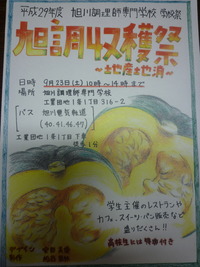 平成29年度 旭川調理師専門学校 学校祭
旭調収穫祭
～地産地消～
日時 9月23日(土) 10時～14時まで
場所 旭川調理師専門学校
工業団地1条1丁目316-2
【バス 旭川電気軌道
(40.41.46.49)
工業団地1条1丁目下車
徒歩1分
学生主催のレストランや
カフェ、スイーツ・パン販売などで
盛りだくさん!!
高校生には特典付き
デザイン